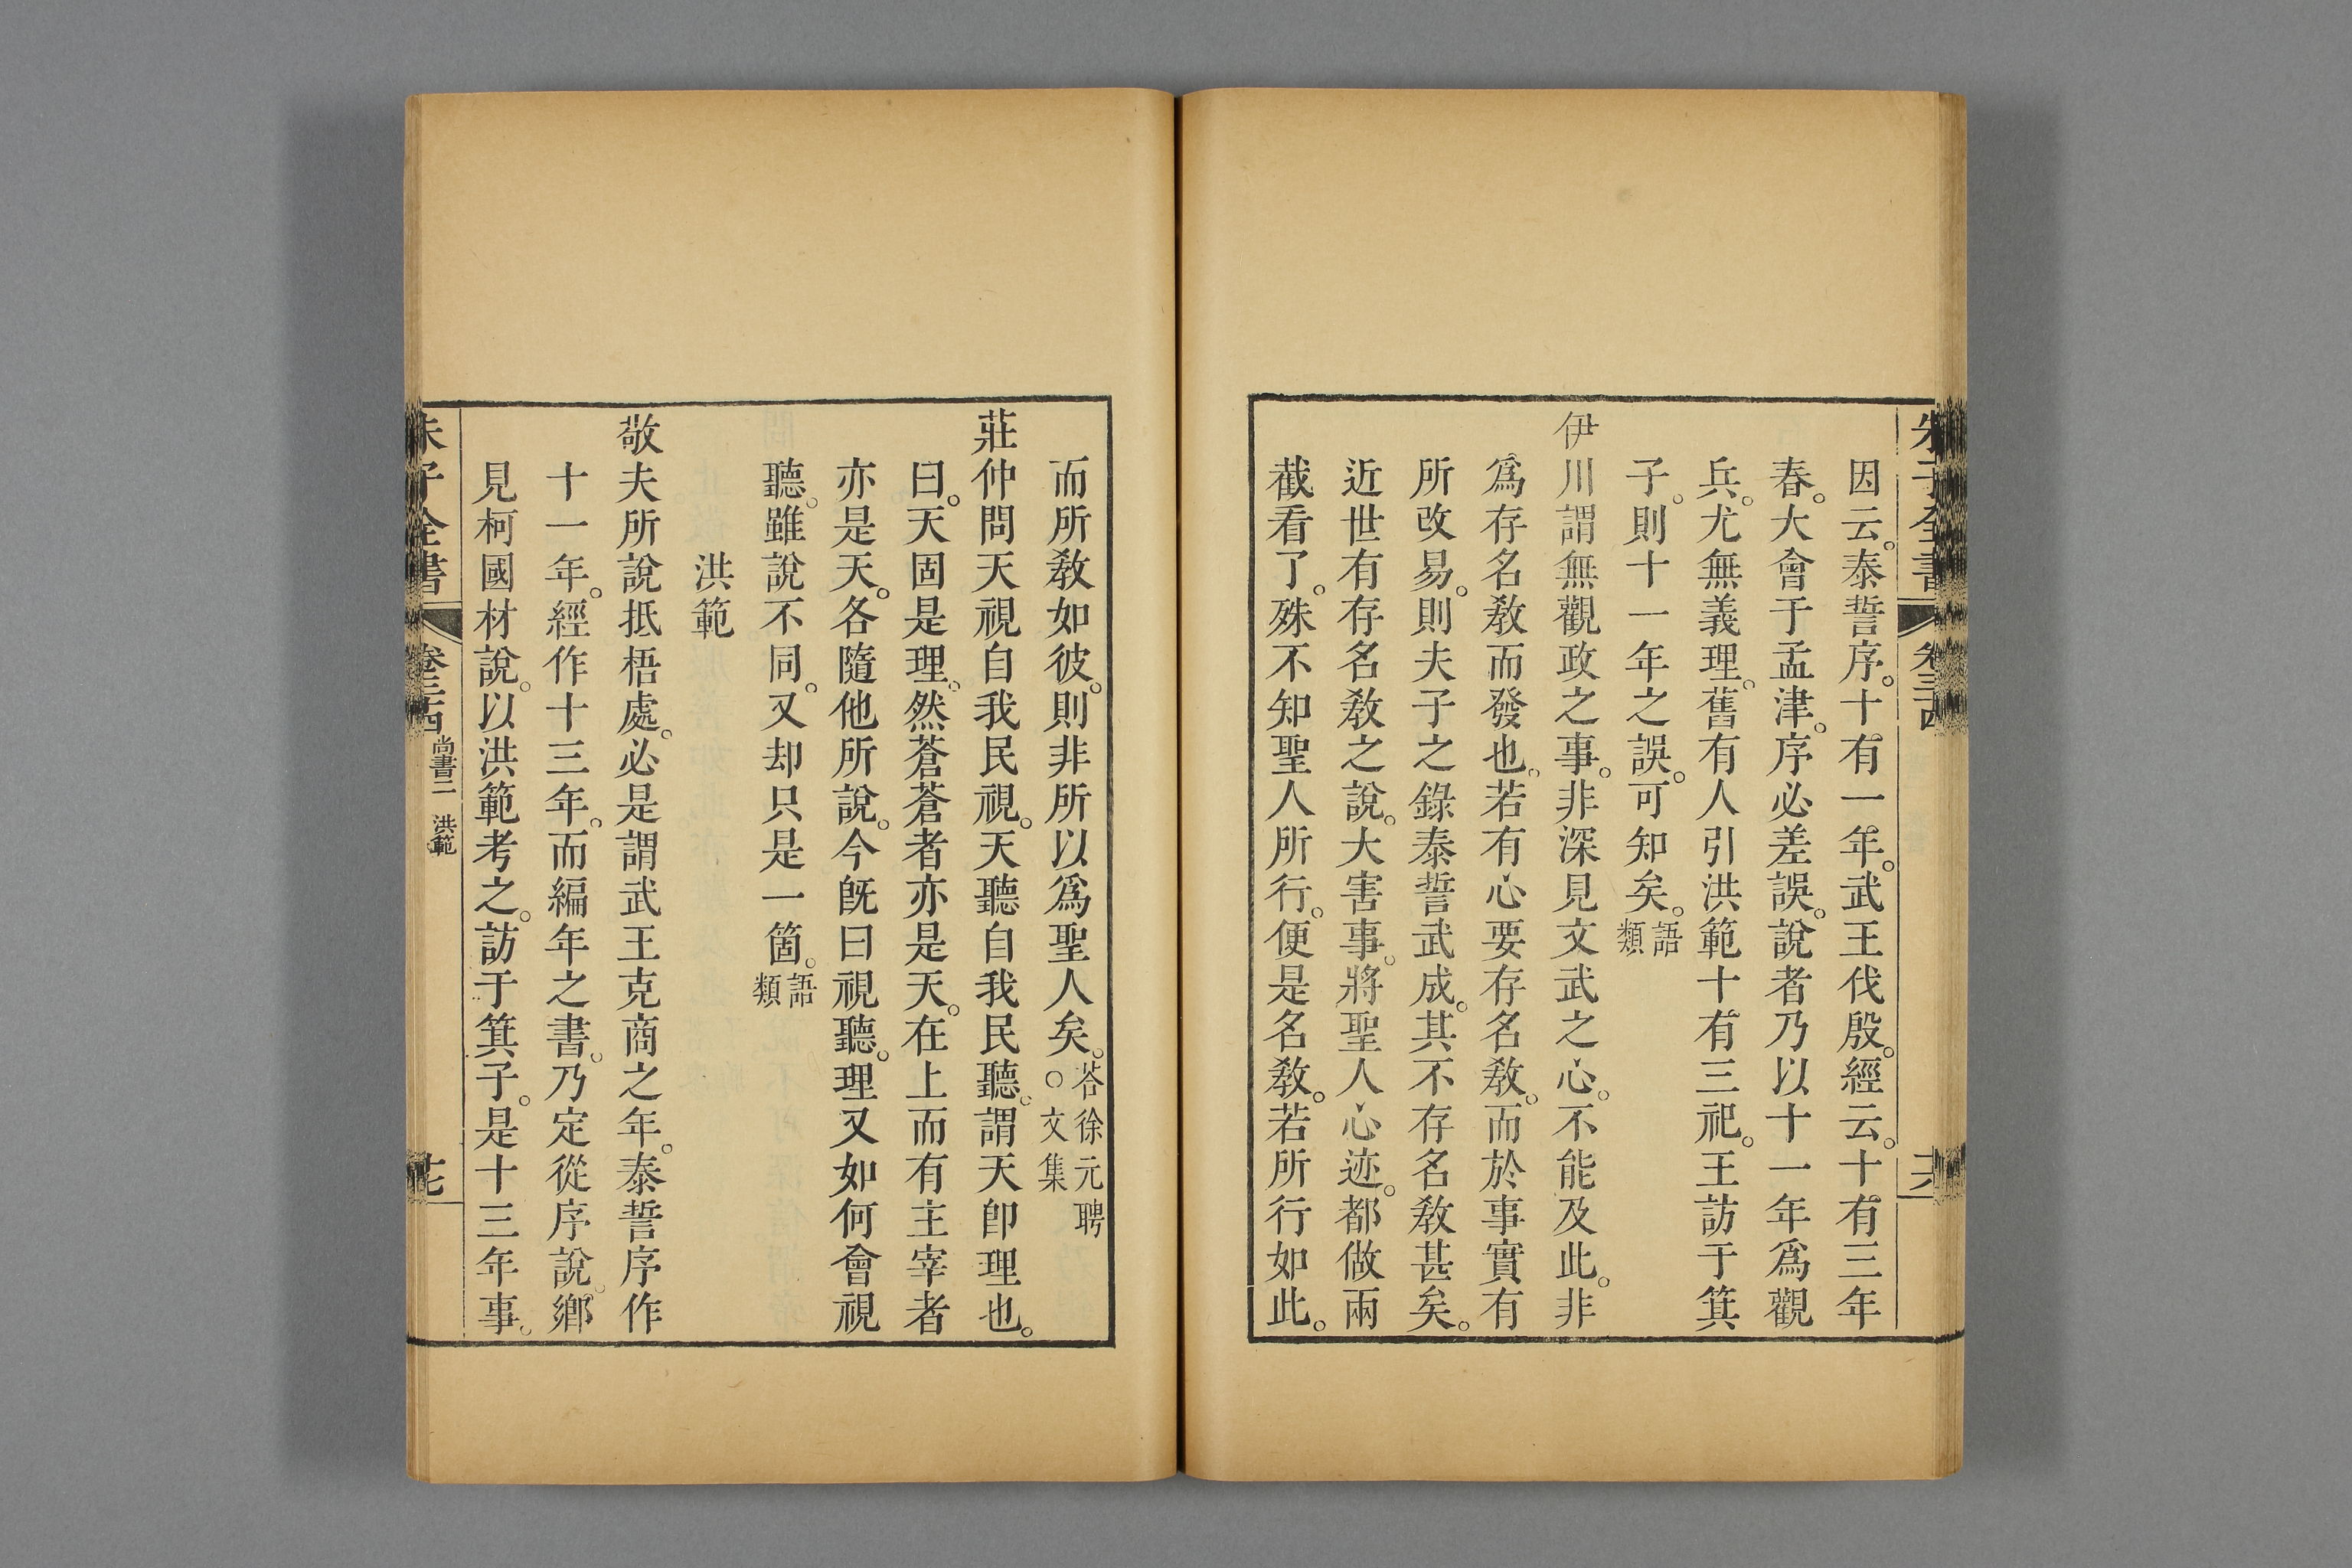 朱子全書 卷三十四 十六
因云。泰誓序。十有一年。武王伐殷。經云。十有三年
春。大會于孟津。序必差誤。說者乃以十一年爲觀
兵。尤無義理。舊有人引洪範十有三祀。王訪于箕
子。則十一年之誤。可知矣。語類
伊川謂無觀政之事。非深見文武之心。不能及此。非
爲存名敎而發也。若有心要存名敎。而於事實有
所改易。則夫子之錄泰誓武成。其不存名敎甚矣。
近世有存名敎之說。大害事。將聖人心迹。都做兩
截看了。殊不知聖人所行。便是名敎。若所行如此。
而所敎如彼。則非所以爲聖人矣。荅徐元聘○文集
莊仲問天視自我民視。天聽自我民聽。謂天卽理也。
曰。天固是理。然蒼蒼者亦是天。在上而有主宰者
亦是天。各隨他所說。今旣曰視聽。理又如何會視
聽。雖說不同。又却只是一箇。語類
洪範
敬夫所說抵梧處。必是謂武王克商之年。泰誓序作
十一年。經作十三年。而編年之書。乃定從序說。鄉
見柯國材說。以洪範考之。訪于箕子。是十三年事。
朱子全書 卷三十四 尚書二 洪範 十七